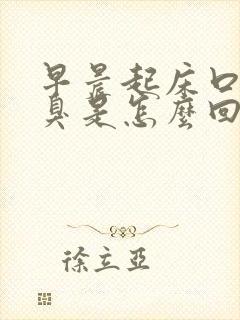 早晨起床口
臭是怎麼回
徐立亞